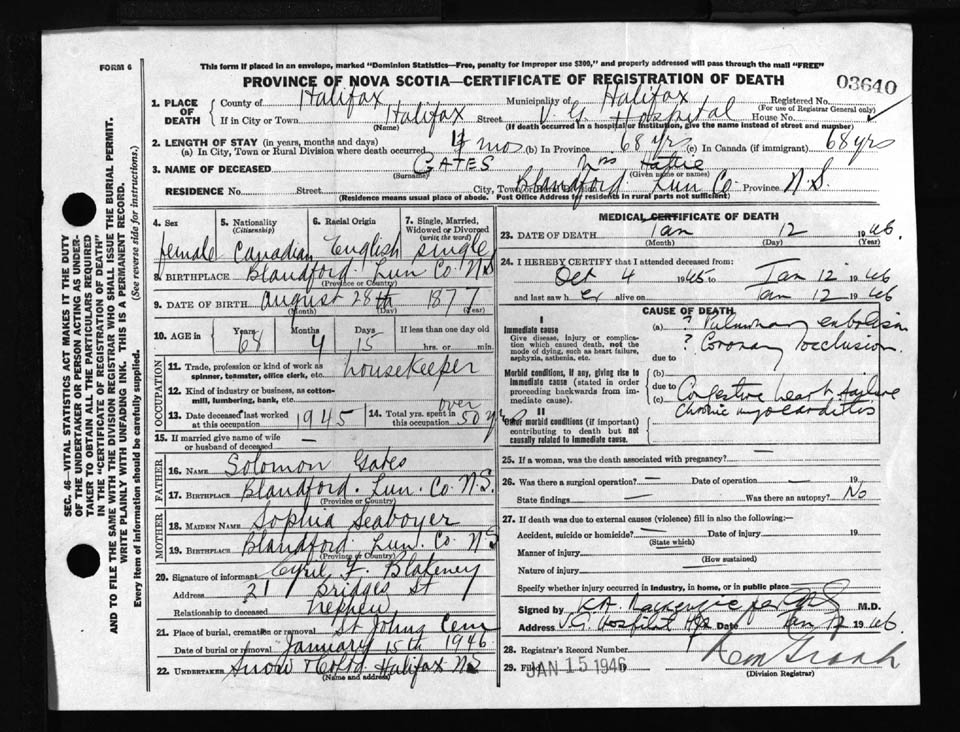 FORM 6
This form if placed in an envelope, marked "Dominion Statistics—Free, penalty for improper use $300," and properly addressed will pass through the mail "FREE"
PROVINCE OF NOVA SCOTIA—CERTIFICATE OF REGISTRATION OF DEATH
03640
1. PLACE OF DEATH County of Halifax Municipality of Halifax Registered No. (For use of Registrar General only)
If in City or Town Halifax (Name) Street V. G. Hospital House No.
(If death occurred in a hospital or institution, give the name instead of street and number)
2. LENGTH OF STAY (in years, months and days)
(a) In City, Town or Rural Division where death occurred 4 mos (b) In Province 68 yrs (c) In Canada (if immigrant) 68 yrs
3. NAME OF DECEASED GATES Mrs Hattie
(Surname) (Given name or names)
RESIDENCE No. Street City, Town or Rural Blandford Lun Co. Province N.S.
(Residence means usual place of abode. Post Office Address for residents in rural parts not sufficient)
SEC. 46—VITAL STATISTICS ACT MAKES IT THE DUTY
OF THE UNDERTAKER OR PERSON ACTING AS UNDER-
TAKER TO OBTAIN ALL THE PARTICULARS REQUIRED
IN THE "CERTIFICATE OF REGISTRATION OF DEATH"
AND TO FILE THE SAME WITH THE DIVISION REGISTRAR WHO SHALL ISSUE THE BURIAL PERMIT.
WRITE PLAINLY WITH UNFADING INK. THIS IS A PERMANENT RECORD.
Every item of information should be carefully supplied. (See reverse side for instructions.)
4. Sex 5. Nationality (Citizenship) 6. Racial Origin 7. Single, Married, Widowed or Divorced (write the word)
female Canadian English single
8. BIRTHPLACE Blandford Lun Co. NS
(Province or Country)
9. DATE OF BIRTH August 28th 1877
(Month) (Day) (Year)
10. AGE in Years 68 Months 4 Days 15 If less than one day old hrs. or min.
OCCUPATION
11. Trade, profession or kind of work as spinner, teamster, office clerk, etc. housekeeper
12. Kind of industry or business, as cotton-mill, lumbering, bank, etc.
13. Date deceased last worked at this occupation 1945 14. Total yrs. spent in this occupation over 50 yrs
15. If married give name of wife or husband of deceased —
FATHER
16. NAME Solomon Gates
17. BIRTHPLACE Blandford. Lun. Co. N.S.
(Province or Country)
MOTHER
18. MAIDEN NAME Sophia Seaboyer
19. BIRTHPLACE Blandford. Lun. Co. N.S
(Province or Country)
20. Signature of informant Cyril F. Blakeney
Address 21 Bridges St
Relationship to deceased nephew
21. Place of burial, cremation or removal St Johns Cem
Date of burial or removal January 15th 1946
22. UNDERTAKER Snow & Co Ltd Halifax NS
(Name and address)
MEDICAL CERTIFICATE OF DEATH
23. DATE OF DEATH Jan 12 1946.
(Month) (Day) (Year)
24. I HEREBY CERTIFY that I attended deceased from:
Oct 4 1945 to Jan 12 1946
and last saw her alive on Jan 12 1946
CAUSE OF DEATH
I
Immediate cause
Give disease, injury or complication which caused death, not the mode of dying, such as heart failure, asphyxia, asthenia, etc.
(a) ? Pulmonary embolism
? Coronary occlusion.
due to
Morbid conditions, if any, giving rise to immediate cause (stated in order proceeding backwards from immediate cause).
(b)
due to
(c) Congestive heart failure
chronic myocarditis
II
Other morbid conditions (if important) contributing to death but not causally related to immediate cause.
25. If a woman, was the death associated with pregnancy? —
26. Was there a surgical operation? — Date of operation — 19
State findings Was there an autopsy? No
27. If death was due to external causes (violence) fill in also the following:—
Accident, suicide or homicide? — Date of injury 19
(State which)
Manner of injury
(How sustained)
Nature of injury
Specify whether injury occurred in industry, in home, or in public place
Signed by K.A. Mackenzie per M.D.
Address V.G. Hospital Hfx Date Jan 1946.
28. Registrar's Record Number
29. Filed JAN 15 1946
(Division Registrar)